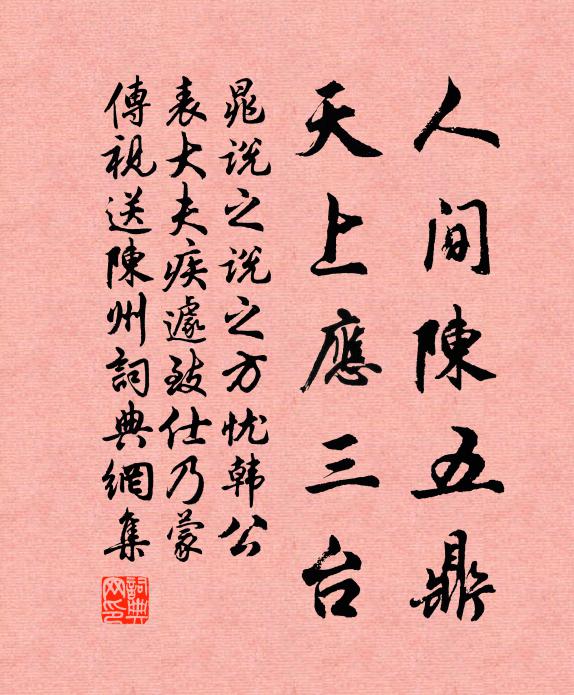 人间陳五鼎
天上應三台
晁说之说之方忧韩公
表大夫疾遽致仕乃蒙
傳視送陳州詞典網集
詞典网印